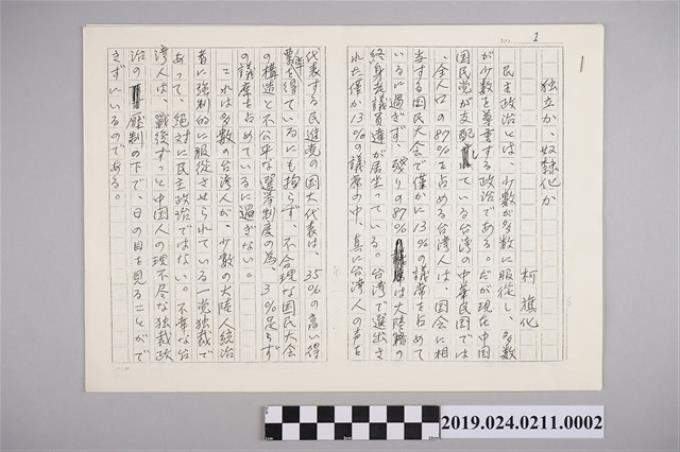 1
独立か、奴隷化か
柯旗化
民主政治とは、少数が多数に服従し、多数
が少数を尊重する政治である。だが現在中国
国民党が支配している台湾の中華民国では
、全人口の87%を占める台湾人は、国会に相
当する国民大会で僅かに13%の議席を占めて
いるに過ぎず、残りの87%は大陸籍の
終身老議員達が居坐っている。台湾で選出さ
れた僅か13%の議席の中、真に台湾人の声を
代表する民進党の国大代表は、35%の高い得
票率を得ているにも拘らず、不合理な国民大会
の構造と不公平な選挙制度の為、3%足らず
の議席を占めているに過ぎない。
これは多数の台湾人が、少数の大陸人統治
者に強制的に服従させられている一党独裁で
あって、絶対に民主政治ではない。不幸な台
湾人は、戦後ずっと中国人の理不尽な独裁政
治の圧制の下で、日の目を見ることがで
きずにいるのである。
2019.024.0211.0002